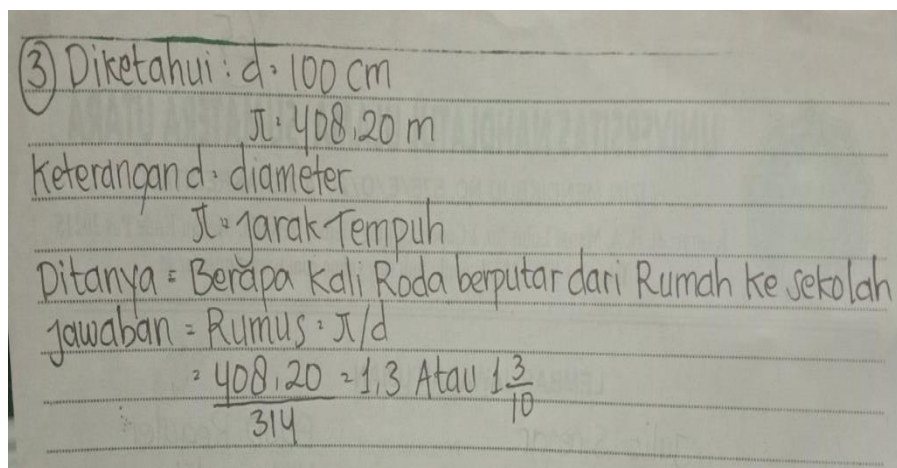 ③ Diketahui : d = 100 cm
π = 408,20 m
Keterangan d = diameter
π = Jarak Tempuh
Ditanya = Berapa Kali Roda berputar dari Rumah ke sekolah
Jawaban = Rumus = π/d
= 408,20/314 = 1,3 Atau 1 3/10